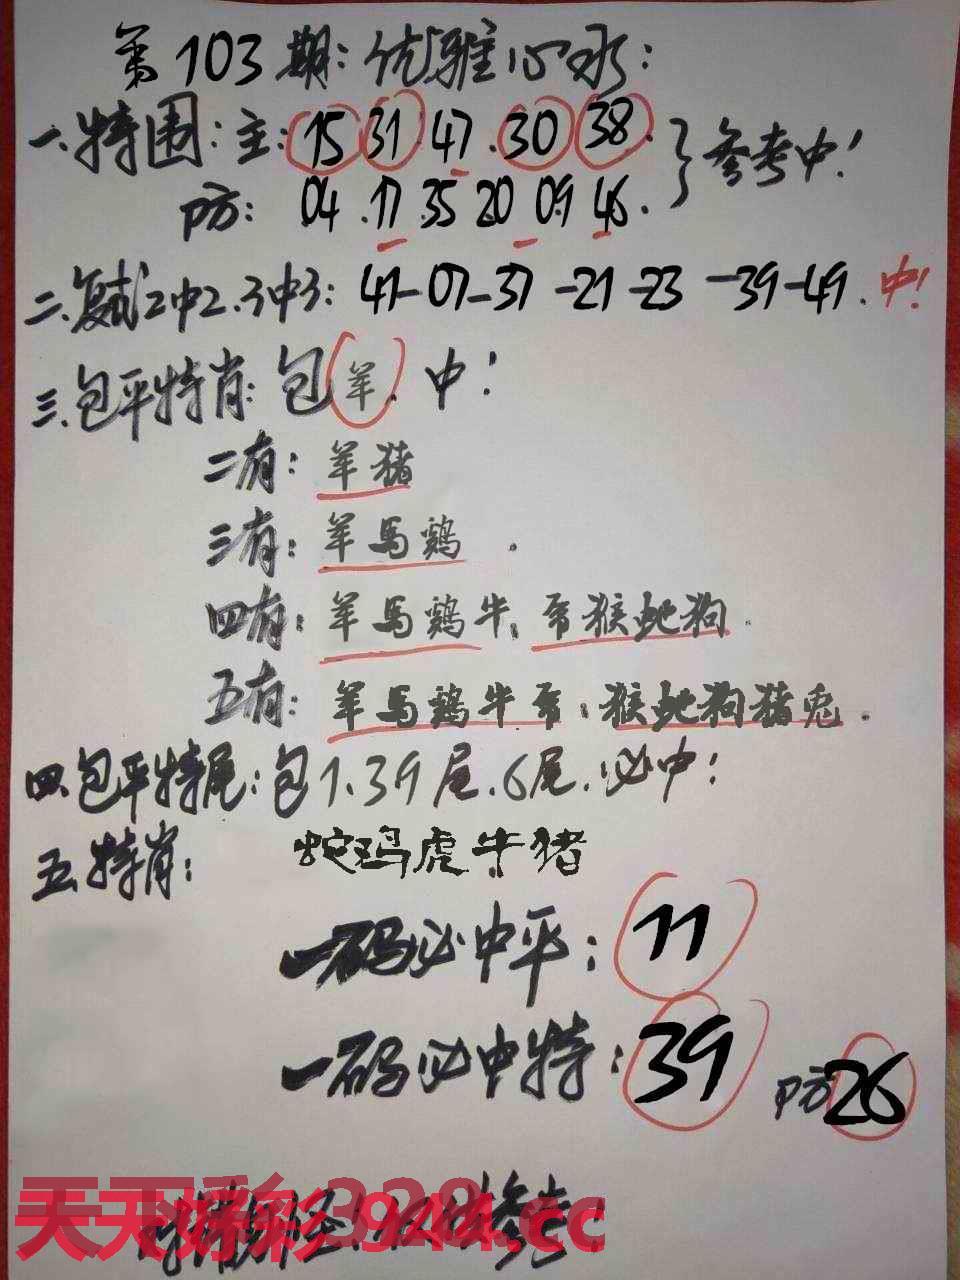 第103期：优雅心水：
一.特围：主：15 31 47.30 38.
防：04.17.35 20 09 46.
参考中！
二.复式2中2.3中3：41-07-37-21-23-39-49.中！
三.包平特肖：包羊.中！
二有：羊猪
三有：羊马鸡.
四有：羊马鸡牛.  猴蛇狗.
五有：羊马鸡牛  .猴蛇狗猪兔.
四.包平特尾：包1.39尾.6尾.必中！
五.特肖：蛇鸡虎牛猪
一码必中平：11
一码必中特：39 防26
天天好彩 944.cc
参考